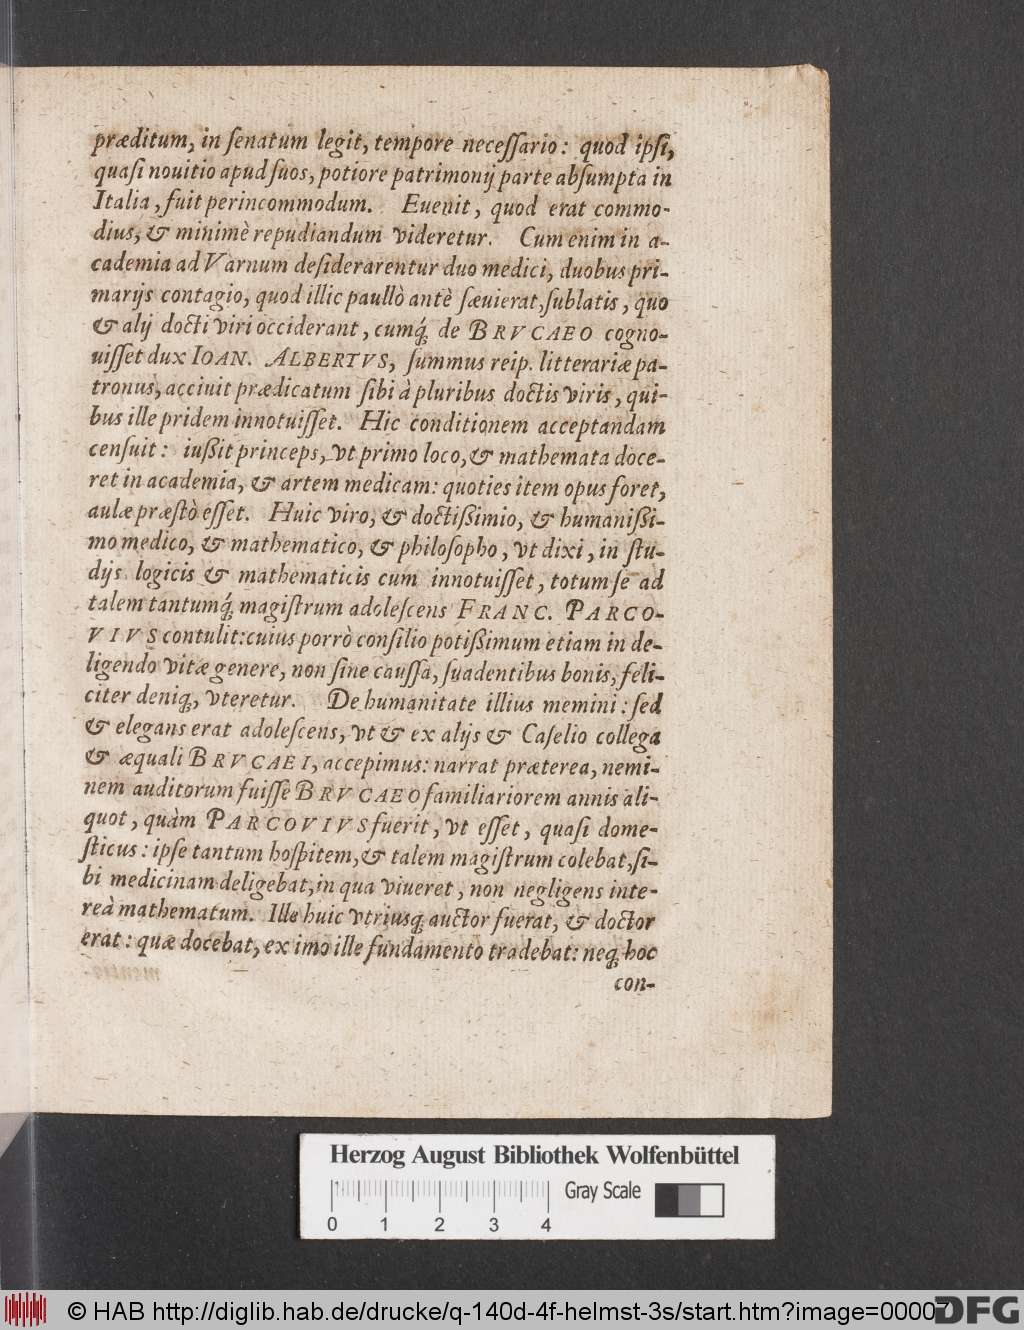 præditum, in ſenatum legit, tempore neceſſario: quod ipſi,
quaſi nouitio apud ſuos, potiore patrimonij parte abſumpta in
Italia, fuit perincommodum. Euenit, quod erat commo-
dius, & minimè repudiandum videretur. Cum enim in a-
cademia ad Varnum deſiderarentur duo medici, duobus pri-
marijs contagio, quod illic paullò antè ſæuierat, ſublatis, quo
& alij docti viri occiderant, cumq́; de BRVCAEO cogno-
uiſſet dux IOAN. ALBERTVS, ſummus reip. litterariæ pa-
tronus, acciuit prædicatum ſibi à pluribus doctis viris, qui-
bus ille pridem innotuiſſet. Hic conditionem acceptandam
cenſuit: iußit princeps, vt primo loco, & mathemata doce-
ret in academia, & artem medicam: quoties item opus foret,
aulæ præſtò eſſet. Huic viro, & doctißimio, & humanißi-
mo medico, & mathematico, & philoſopho, vt dixi, in ſtu-
dijs logicis & mathematicis cum innotuiſſet, totum ſe ad
talem tantumq́; magiſtrum adoleſcens FRANC. PARCO-
VIVS contulit: cuius porrò conſilio potißimum etiam in de-
ligendo vitæ genere, non ſine cauſſa, ſuadentibus bonis, feli-
citer deniq; vteretur. De humanitate illius memini: ſed
& elegans erat adoleſcens, vt & ex alijs & Caſelio collega
& æquali BRVCAEI, accepimus: narrat præterea, nemi-
nem auditorum fuiſſe BRVCAEO familiariorem annis ali-
quot, quàm PARCOVIVS fuerit, vt eſſet, quaſi dome-
ſticus: ipſe tantum hoſpitem, & talem magiſtrum colebat, ſi-
bi medicinam deligebat, in qua viueret, non negligens inte-
reà mathematum. Ille huic vtriusq; auctor fuerat, & doctor
erat: quæ docebat, ex imo ille fundamento tradebat: neq; hoc
con-
Herzog August Bibliothek Wolfenbüttel
Gray Scale
0 1 2 3 4
© HAB http://diglib.hab.de/drucke/q-140d-4f-helmst-3s/start.htm?image=00007
DFG